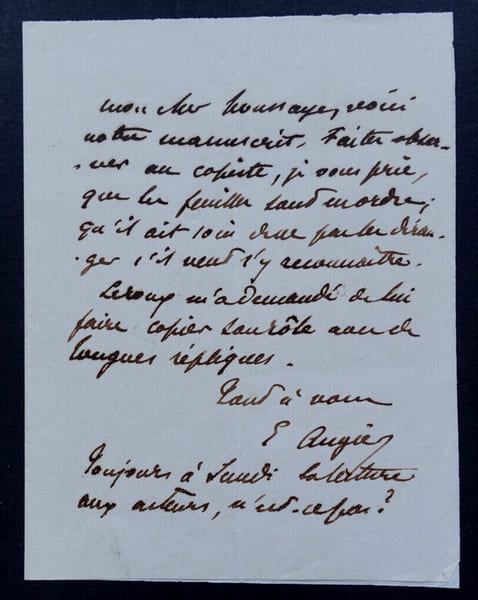 mon cher houssaye, voici
notre manuscrit. Faites obser-
-ver au copiste, je vous prie,
que les feuilles sont en ordre;
qu'il ait soin de ne pas les déran-
-ger s'il veut s'y reconnaître.
Leroux m'a demandé de lui
faire copier son rôle avec de
longues répliques.
Tout à vous
E Augier
Toujours à Lundi la lecture
aux acteurs, n'est-ce pas?